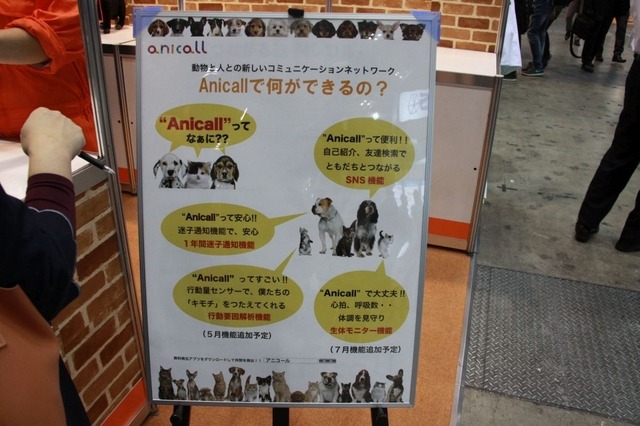 anicall
動物と人との新しいコミュニケーションネットワーク
Anicallで何ができるの？
“Anicall”って
なぁに??
“Anicall”って便利!!
自己紹介、友達検索で
ともだちとつながる
SNS機能
“Anicall”って安心!!
迷子通知機能で、安心
1年間迷子通知機能
“Anicall” ってすごい!!
行動量センサーで、僕たちの
「キモチ」をつたえてくれる
行動要因解析機能
（5月機能追加予定）
“Anicall” で大丈夫!!
心拍、呼吸数・・
体調を見守り
生体モニター機能
（7月機能追加予定）
アニコール